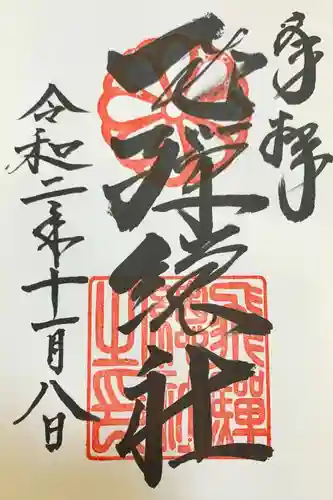 奉拝
飛騨総社
飛驒
總社
之印
令和二年十一月八日